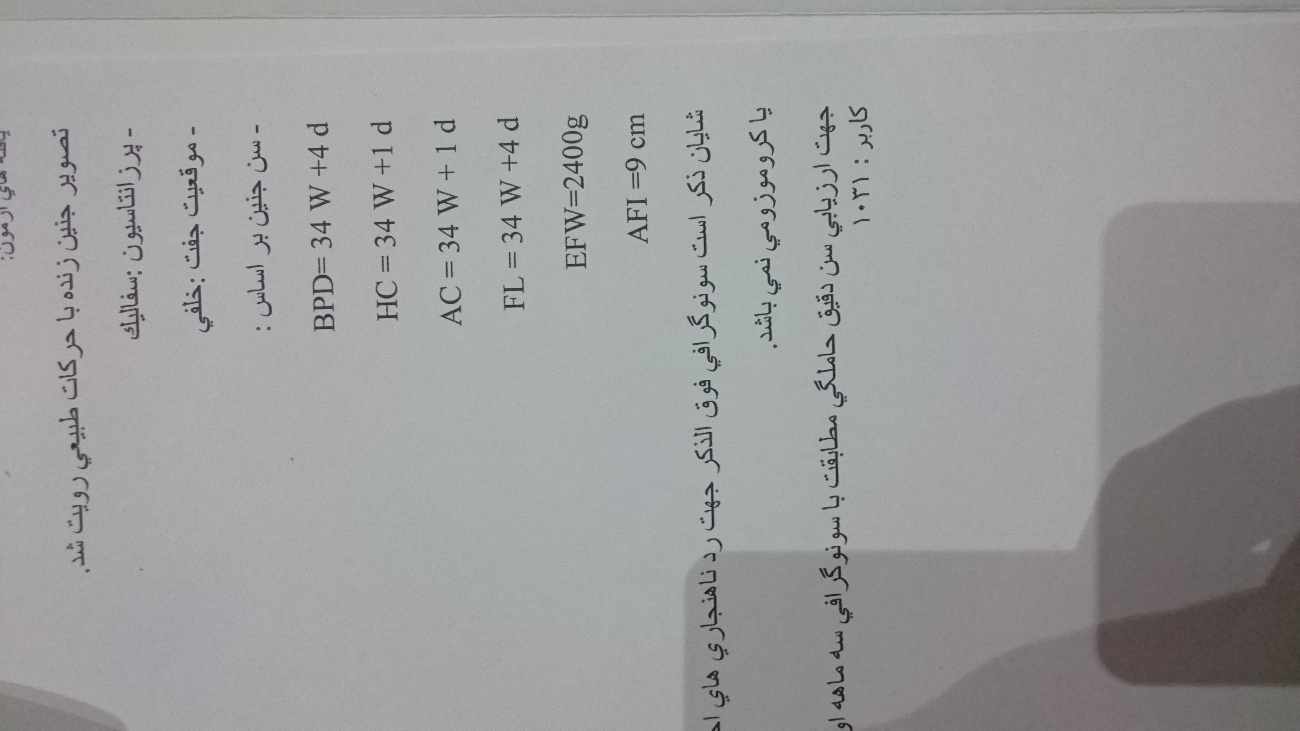 يافته هاي ازمون:
تصوير جنين زنده با حركات طبيعي رويت شد.
- پرزانتاسيون :سفاليك
- موقعيت جفت :خلفي
- سن جنين بر اساس :
BPD= 34 W +4 d
HC = 34 W +1 d
AC = 34 W + 1 d
FL = 34 W +4 d
EFW=2400g
AFI =9 cm
شايان ذكر است سونوگرافي فوق الذكر جهت رد ناهنجاري هاي
يا كروموزومي نمي باشد.
جهت ارزيابي سن دقيق حاملگي مطابقت با سونوگرافي سه ماهه
كاربر : ۱۰۳۱